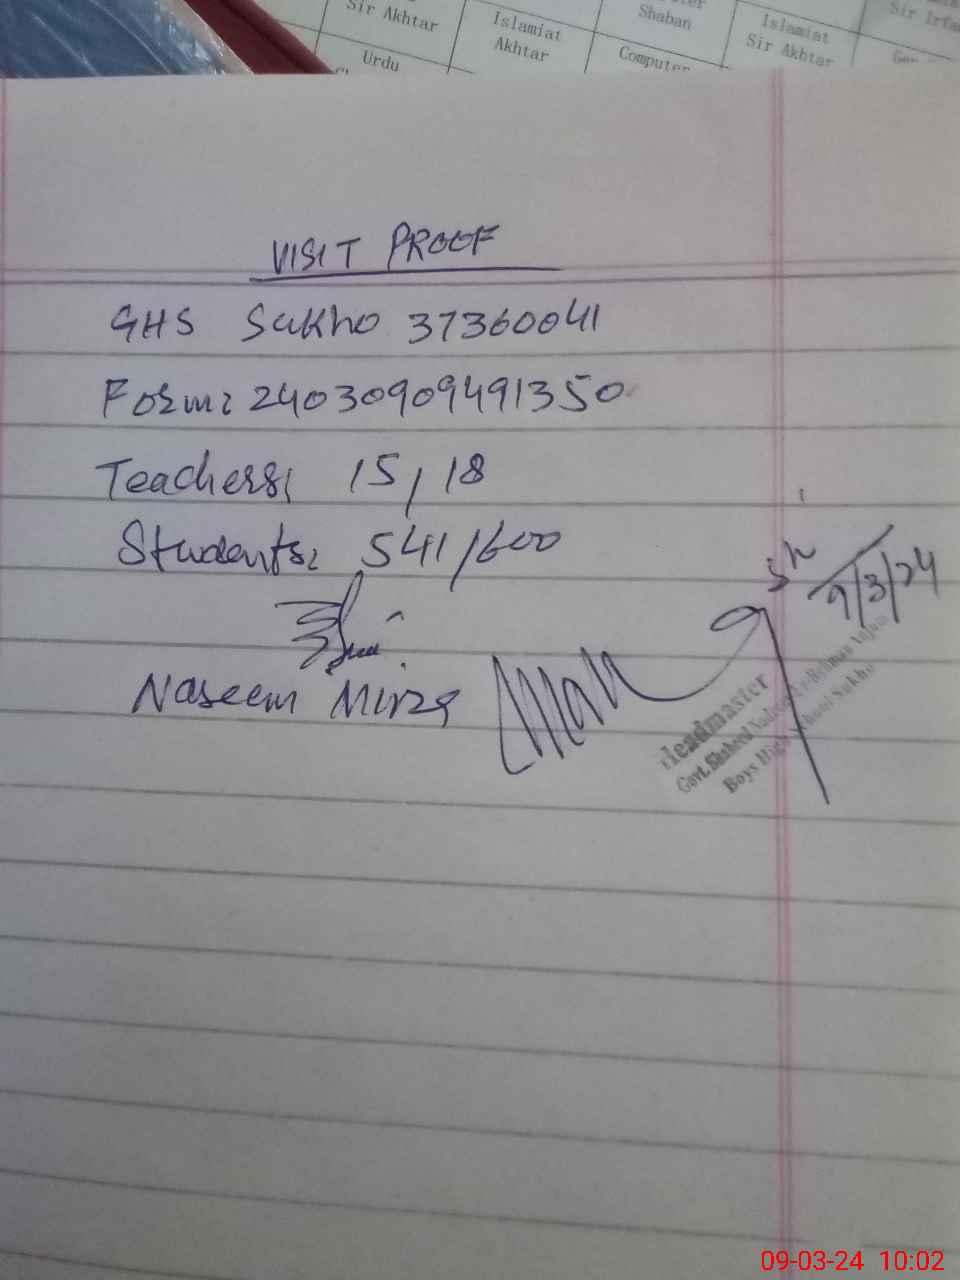 Sir Akhtar
Islamiat
Akhtar
Shaban
Islamiat
Sir Akhtar
Urdu
Computer
VISIT PROOF
GHS Sukho 37360041
Form: 24030909491350
Teachers: 15/18
Students: 541/600
9/3/24
Naseem Mirza
Headmaster
Govt. Shaheed
Boys High School Sukho
09-03-24 10:02